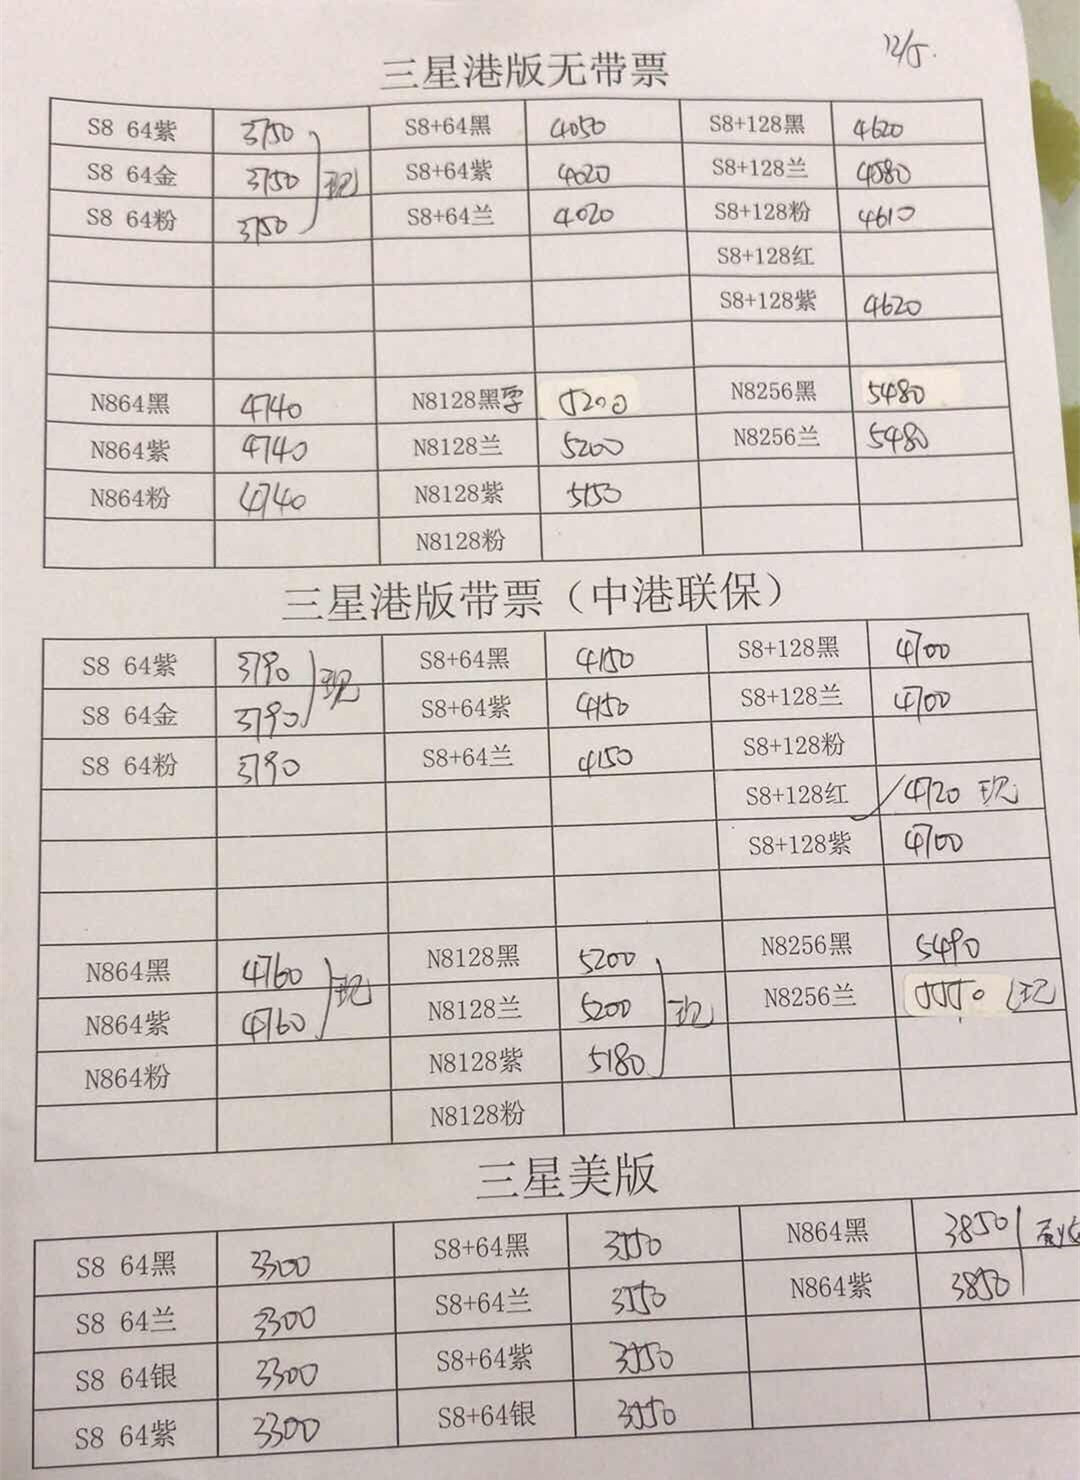 12/5.
三星港版无带票
S8 64紫 3750 S8+64黑 4050 S8+128黑 4620
S8 64金 3750 现 S8+64紫 4020 S8+128兰 4580
S8 64粉 3750 S8+64兰 4020 S8+128粉 4610
S8+128红
S8+128紫 4620
N864黑 4740 N8128黑 5200 N8256黑 5480
N864紫 4740 N8128兰 5200 N8256兰 5480
N864粉 4740 N8128紫 5150
N8128粉
三星港版带票（中港联保）
S8 64紫 3790 现 S8+64黑 4150 S8+128黑 4700
S8 64金 3790 S8+64紫 4150 S8+128兰 4700
S8 64粉 3790 S8+64兰 4150 S8+128粉
S8+128红 4720 现
S8+128紫 4700
N864黑 4760 现 N8128黑 5200 N8256黑 5490
N864紫 4760 N8128兰 5200 现 N8256兰 5550 现
N864粉 N8128紫 5180
N8128粉
三星美版
S8 64黑 3300 S8+64黑 3550 N864黑 3850
S8 64兰 3300 S8+64兰 3550 N864紫 3850
S8 64银 3300 S8+64紫 3550
S8 64紫 3300 S8+64银 3550